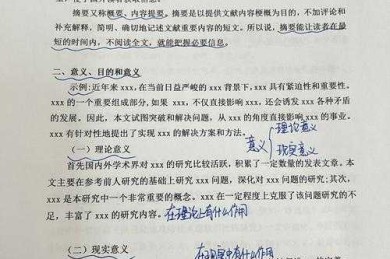 摘要又称概要、内容提要。摘要是以提供文献内容梗概为目的,不加评论和
补充解释,简明、确切地记述文献重要内容的短文。所以说,摘要能让读者在最
短的时间内,不阅读全文,就能把握必要信息。
二、意义、目的和意义
示例:近年来 xxx,在当前日益严峻的 xxx 背景下,xxx 具有紧迫性和重要性。
xxx 的一个重要组成部分,如果 xxx,不仅直接影响 xxx,还会诱发 xxx 各种矛盾
的发展。因此,本文试图突破和解决问题,从 xxx 的角度直接影响 xxx 的等功,
xxx 有针对性地提出了实现 xxx 的解决方案和方法。
意义
理论意义
现实意义
(一)理论意义
首先国内外学术界对 xxx 的研究比较活跃,积累了一定数量的发表文章,本
文主要在参考前人研究的基础上研究 xxx 问题,深化对 xxx 问题的研究;其次,
xxx 是本研究中一个非常重要的概念。xxx 在一定程度上克服了该问题研究的不
足,丰富了 xxx 的研究内容。
在理论上有什么作用
(二)现实意义